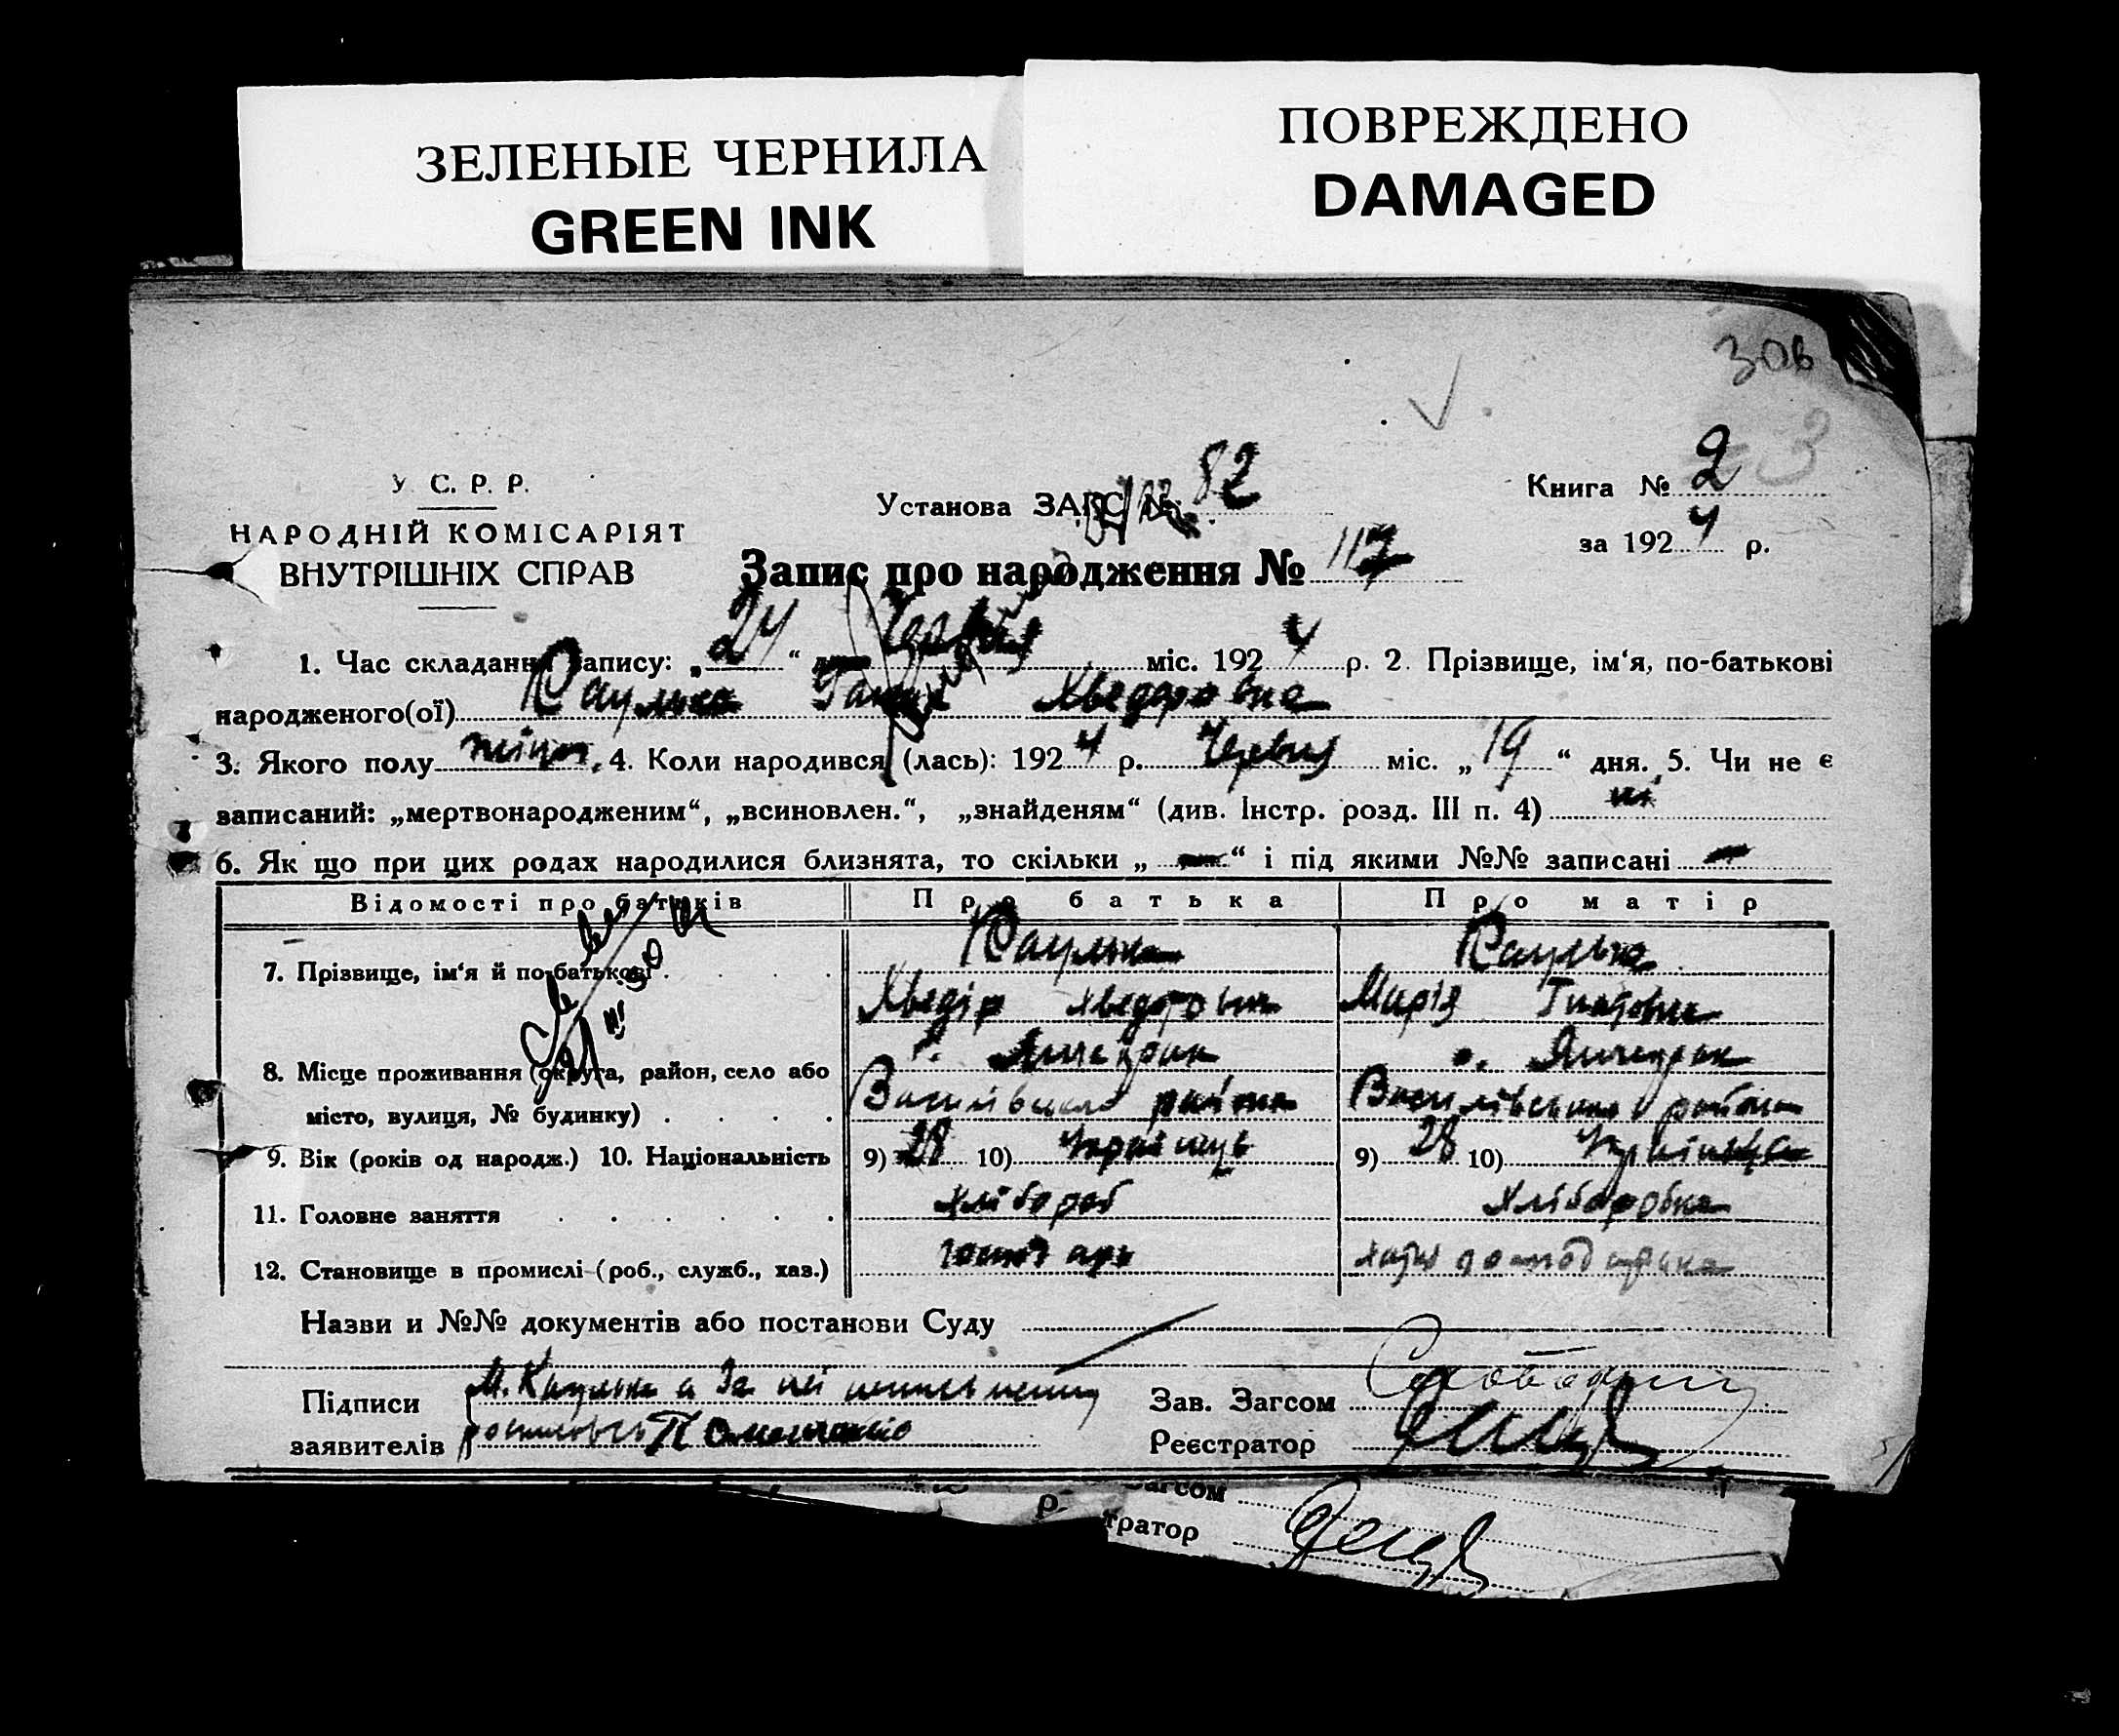 ЗЕЛЕНЫЕ ЧЕРНИЛА
GREEN INK
ПОВРЕЖДЕНО
DAMAGED
30в
3
У. С. Р. Р.
НАРОДНІЙ КОМІСАРІЯТ
ВНУТРІШНІХ СПРАВ
Установа ЗАГС № 82
Книга № 2
за 1924 р.
Запис про народження № 117
1. Час складання запису: „24“ Червня міс. 1924 р. 2. Прізвище, ім‘я, по-батькові
народженого(ої) Каулька Ганна Хведоровна
3. Якого полу жіноч. 4. Коли народився (лась): 1924 р. Червня міс. „19“ дня. 5. Чи не є
записаний: „мертвонародженим“, „всиновлен.“, „знайденям“ (див. Інстр. розд. III п. 4) ні
6. Як що при цих родах народилися близнята, то скільки „—“ і під якими №№ записані —
Відомості про батьків Про батька Про матір
7. Прізвище, ім‘я й по-батькові Каулька Каулька
Хведір Хведорович Марія
8. Місце проживання (округа, район, село або с. Янчекрак с. Янчекрак
місто, вулиця, № будинку) Василівського района Василівського района
9. Вік (років од народж.) 10. Національність 9) 28 10) Українець 9) 28 10) Українка
11. Головне заняття хлібороб хліборобка
12. Становище в промислі (роб., служб., хаз.) господарь
Назви и №№ документів або постанови Суду
Підписи М. Каулька а за неі неписьменну
заявителів росписовсь
Зав. Загсом
Реєстратор
р.
Загсом
тратор